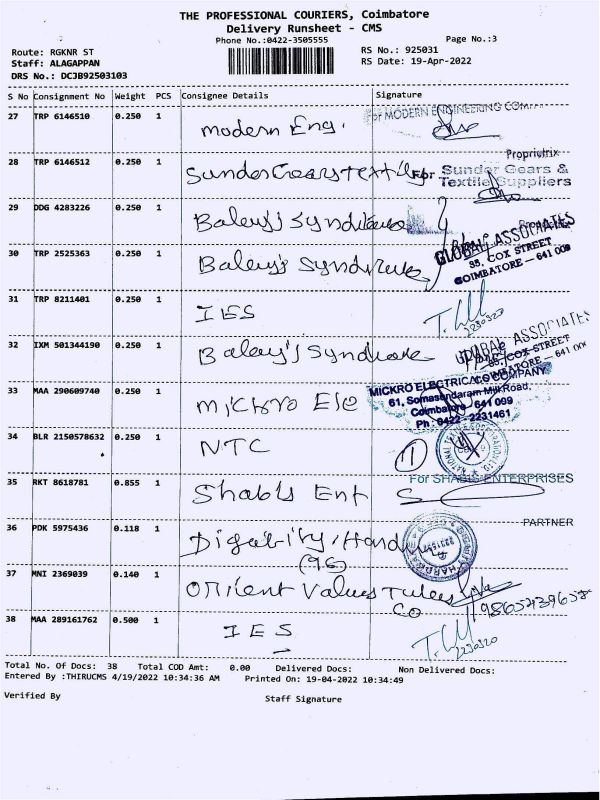 THE PROFESSIONAL COURIERS, Coimbatore
Delivery Runsheet - CMS
Phone No.:0422-3505555
Page No.:3
Route: RGKNR ST
RS No.: 925031
Staff: ALAGAPPAN
RS Date: 19-Apr-2022
DRS No.: DCJB92503103
S No Consignment No Weight PCS Consignee Details Signature
27 TRP 6146510 0.250 1 Modern Eng. For MODERN ENGINEERING
Proprietrix
28 TRP 6146512 0.250 1 Sunder Gears Textile For Sunder Gears &
Textile Suppliers
29 DDG 4283226 0.250 1 Balay's Syndicate
GLOBAL ASSOCIATES
30 TRP 2525363 0.250 1 Balay's Syndicate 85, COX STREET
COIMBATORE - 641 009
31 TRP 8211401 0.250 1 IES
2230320
32 IXM 501344190 0.250 1 Balay's Syndicate GLOBAL ASSOCIATES
85, COX STREET
COIMBATORE - 641 009
33 MAA 290609740 0.250 1 Mickro Ele MICKRO ELECTRICAL COMPANY
61, Somasundaram Mill Road,
Coimbatore - 641 009
Ph : 0422 - 2231461
34 BLR 2150578632 0.250 1 NTC 11
35 RKT 8618781 0.250 1 Shabi's Ent For SHABIS ENTERPRISES
PARTNER
36 PDK 5975436 0.118 1
37 MNI 2369039 0.140 1 Orient Values Tules
Co 9865439658
38 MAA 289161762 0.500 1 IES
2230320
Total No. Of Docs: 38 Total COD Amt: 0.00 Delivered Docs: Non Delivered Docs:
Entered By :THIRUCMS 4/19/2022 10:34:36 AM Printed On: 19-04-2022 10:34:49
Verified By Staff Signature